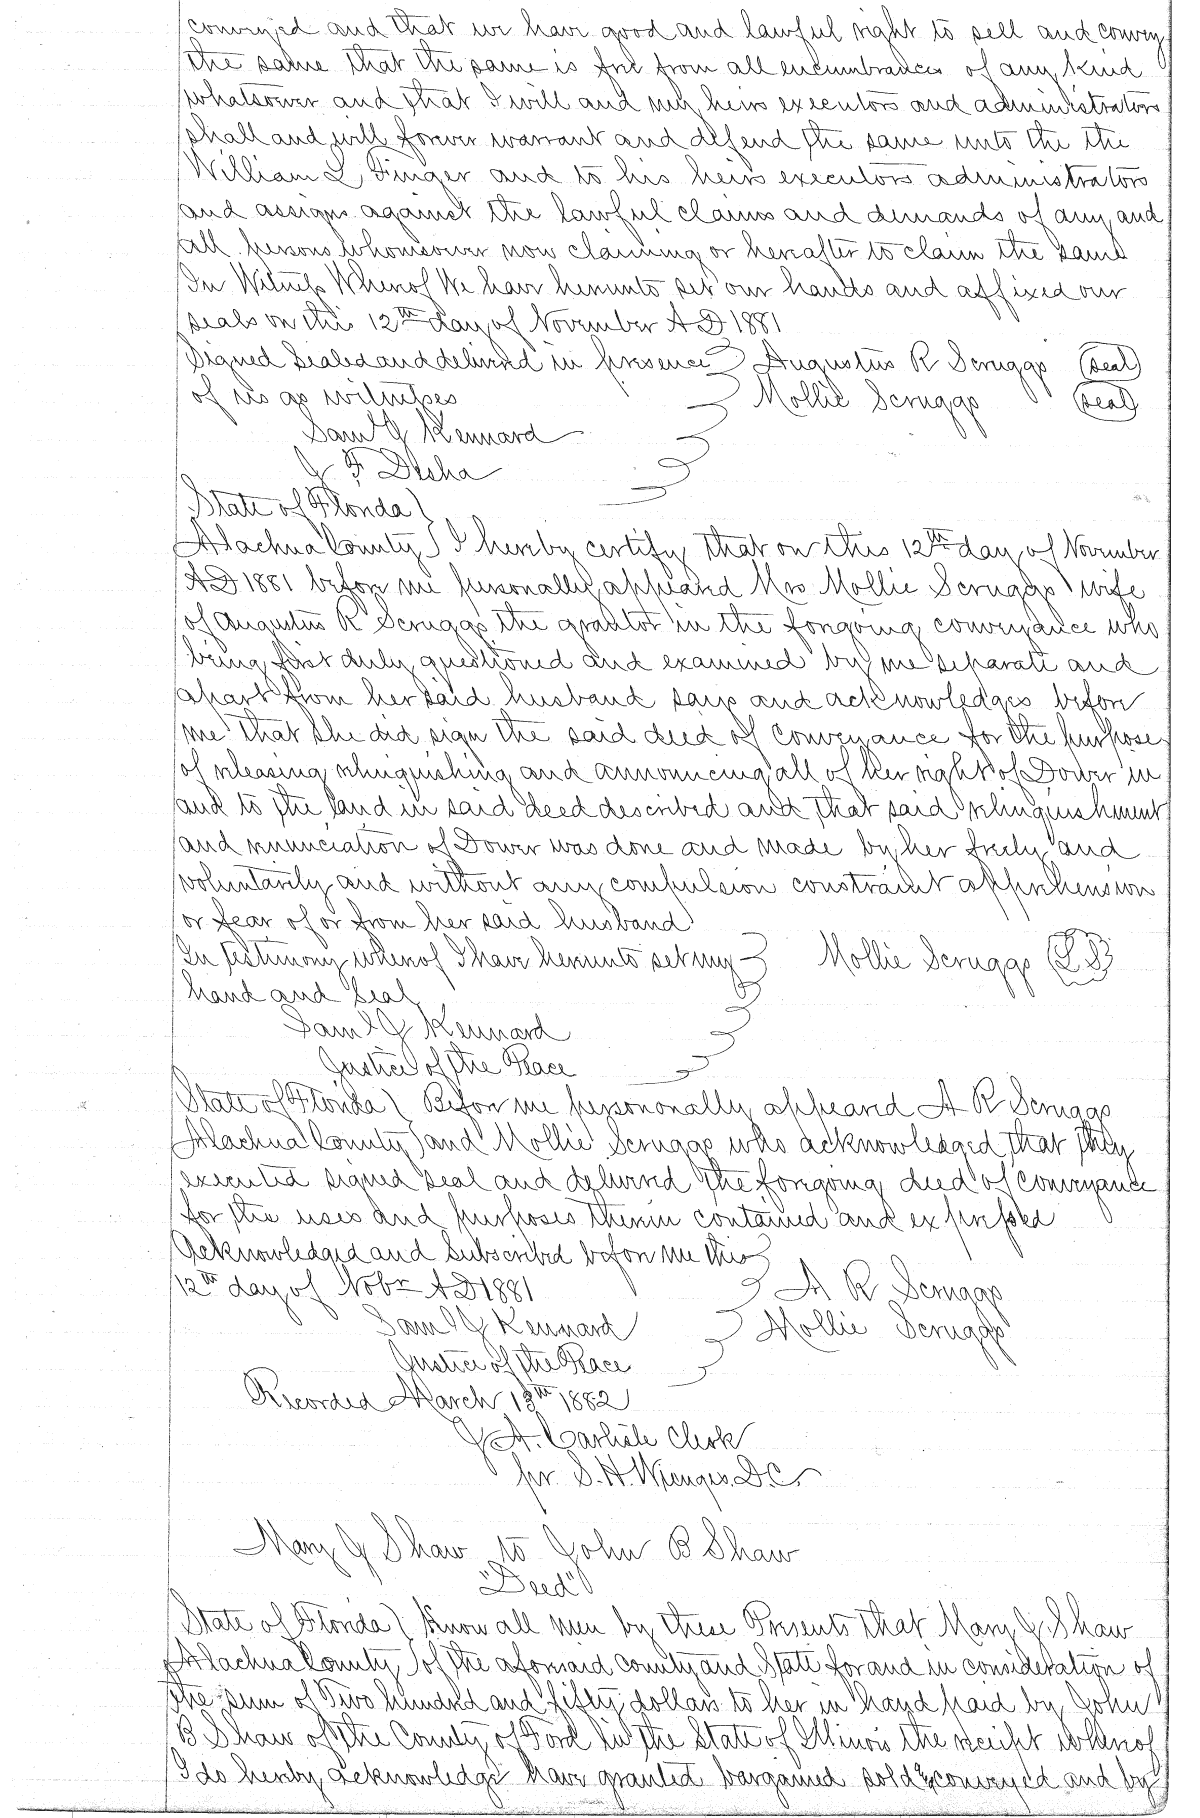 conveyed and that we have good and lawful right to sell and convey
the same that the same is free from all encumbrances of any kind
whatsoever and that I will and my heirs executors and administrators
shall and will forever warrant and defend the same unto the the
William L Finger and to his heirs executors administrators
and assigns against the lawful claims and demands of any and
all persons whomsoever now claiming or hereafter to claim the same
In Witness Whereof We have hereunto set our hands and affixed our
seals on this 12th day of November A D 1881
Signed Sealed and delivered in presence Augustus R Scruggs (seal)
of us as witnesses Mollie Scruggs (seal)
Saml J Kennard
J F Desha
State of Florida
Alachua County I hereby certify that on this 12th day of November
A D 1881 before me personally appeared Mrs Mollie Scruggs wife
of Augustus R Scruggs the grantor in the foregoing conveyance who
being first duly questioned and examined by me separate and
apart from her said husband says and acknowledges before
me that she did sign the said deed of conveyance for the purpose
of releasing relinquishing and announcing all of her right of Dower in
and to the land in said deed described and that said relinquishment
and renunciation of Dower was done and made by her freely and
voluntarily and without any compulsion constraint apprehension
or fear of or from her said husband
In testimony whereof I have hereunto set my Mollie Scruggs (L S)
hand and Seal
Saml J Kennard
Justice of the Peace
State of Florida Before me persononally appeared A R Scruggs
Alachua County and Mollie Scruggs who acknowledged that they
executed signed seal and delivered the foregoing deed of conveyance
for the uses and purposes therein contained and expressed
Acknowledged and Subscribed before me this
12th day of Nobr A D 1881 A R Scruggs
Saml J Kennard Mollie Scruggs
Justice of the Peace
Recorded March 13th 1882
J A. Carlisle Clerk
pr. S. H. Wienges. D.C.
Mary J Shaw to John B Shaw
"Deed"
State of Florida Know all men by these Presents that Mary J. Shaw
Alachua County of the aforesaid county and State for and in consideration of
the sum of Two hundred and fifty dollars to her in hand paid by John
B Shaw of the County of Ford in the State of Illinois the receipt whereof
I do hereby acknowledge have granted bargained sold & conveyed and by